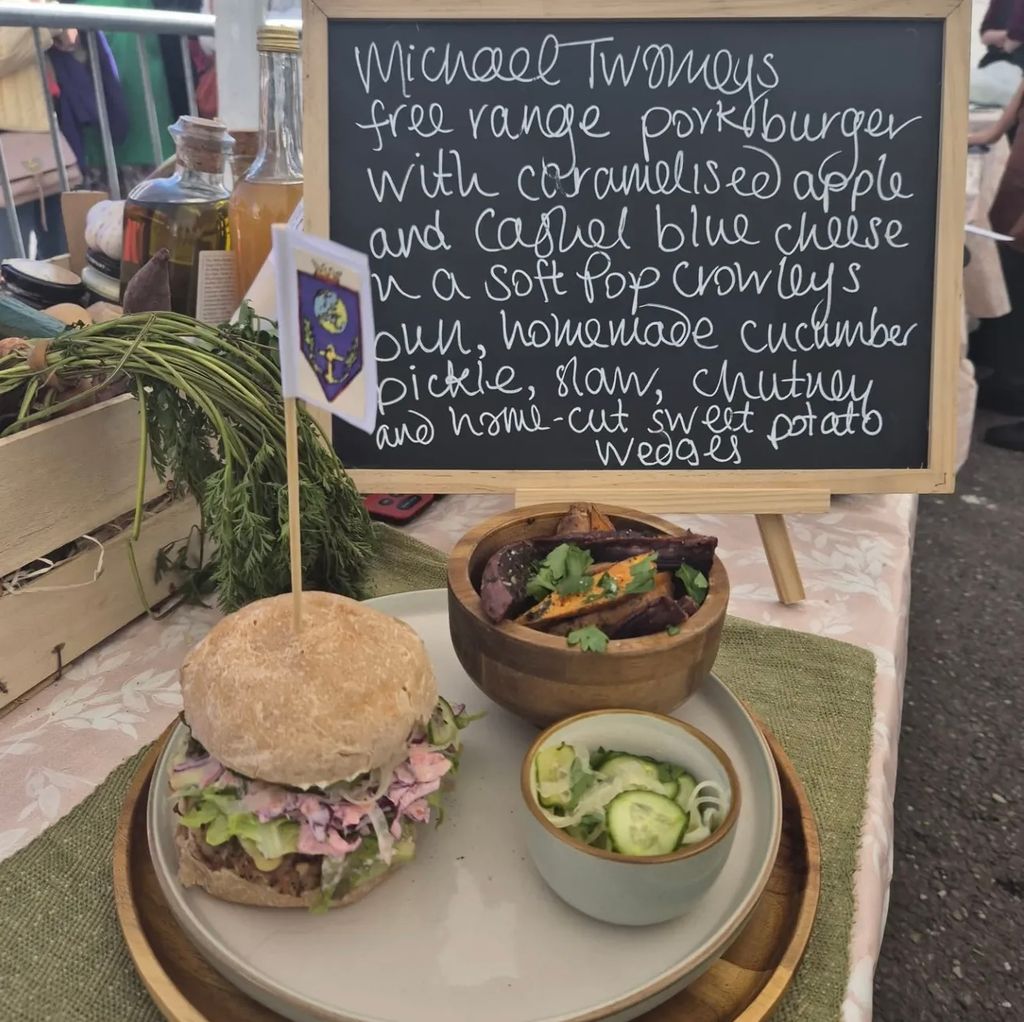 Michael Twomeys
free range pork burger
with caramelised apple
and Cashel blue cheese
in a soft Pop Crowleys
bun, homemade cucumber
pickle, slaw, chutney
and home-cut sweet potato
wedges